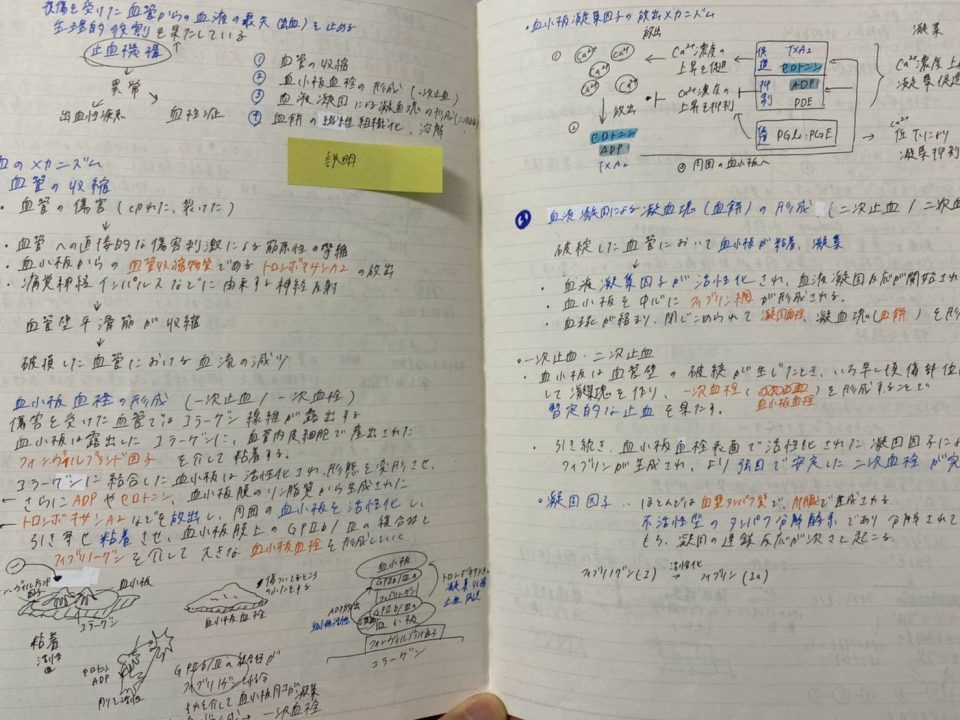 損傷を受けた血管からの血液の喪失(出血)を止める
生理的役割を果たしている
止血機構
異常
出血性疾患 血栓症
① 血管の収縮
② 血小板血栓の形成(一次止血)
③ 血液凝固による凝血塊の形成(二次止血)
④ 血餅の 組織化、溶解
説明
血のメカニズム
血管の収縮
・血管の傷害(切れた、裂けた)
↓
・血管への直接的な傷害刺激による筋原性の攣縮
・血小板からの血管収縮物質であるトロンボキサンA2の放出
・痛覚神経インパルスなどに由来する神経反射
↓
血管壁平滑筋が収縮
↓
破損した血管における血流の減少
血小板血栓の形成(一次止血/一次血栓)
傷害を受けた血管ではコラーゲン線維が露出する
血小板は露出したコラーゲンに、血管内皮細胞で産出された
フォンヴィルブランド因子を介して粘着する。
コラーゲンに結合した血小板は活性化され、形態を変形させ、
さらにADPやセロトニン、血小板膜のリン脂質から生成された
トロンボキサンA2などを放出し、周囲の血小板を活性化し
引き寄せ粘着させ、血小板膜上のGPⅡb/Ⅲaの複合体と
フィブリノーゲンを介して大きな血小板血栓を形成していく
血小板
コラーゲン
粘着
活性化
セロトニン
ADP
傷ついたところ
のふたをする
血小板血栓
GPⅡb/Ⅲa複合体が
フィブリノゲンと結合
それを介して血小板同士が凝集
→ 一次血栓
血小板
GPⅡb/Ⅲa
フィブリノゲン
GPⅡb/Ⅲa
血小板
フォンヴィルブランド因子
コラーゲン
ADP放出
血小板活性
トロンボキサンA2
凝集
止血 促進
・血小板凝集因子の放出メカニズム
放出 凝集
① Ca²⁺ Ca²⁺ Ca²⁺ Ca²⁺
Ca²⁺濃度の
上昇を促進
促進 TXA2
セロトニン
Ca²⁺濃度の
上昇を抑制
抑制 ADP
PDE
PGI₂、PGE
Ca²⁺濃度上
凝集促進
Ca²⁺
低下により
凝集抑制
↓放出
② セロトニン
ADP
TXA2
③周囲の血小板へ
❸ 血液凝固による凝血塊(血餅)の形成 (二次止血/二次血
破損した血管において血小板が粘着、凝集
↓
・血液凝集因子が活性化され、血液凝固反応が開始され
・血小板を中心にフィブリン網が形成される。
・血球が絡まり、閉じこめられて凝固血栓、凝血塊(血餅)を形
・一次止血・二次止血
・血小板は血管壁の破綻が生じたとき、いち早く損傷部位
して凝集塊を作り、一次血栓( )を形成することで
血小板血栓
暫定的な止血を果たす。
・引き続き、血小板血栓表面で活性化された凝固因子によ
フィブリンが生成され、より強固で安定した二次血栓が完
・凝固因子‥ほとんどは血漿タンパク質で、肝臓で生成される
不活性型のタンパク分解酵素であり分解されて
もち、凝固の連鎖反応が次々と起こる。
フィブリノゲン(Ⅰ) 活性化→ フィブリン(Ⅰa)